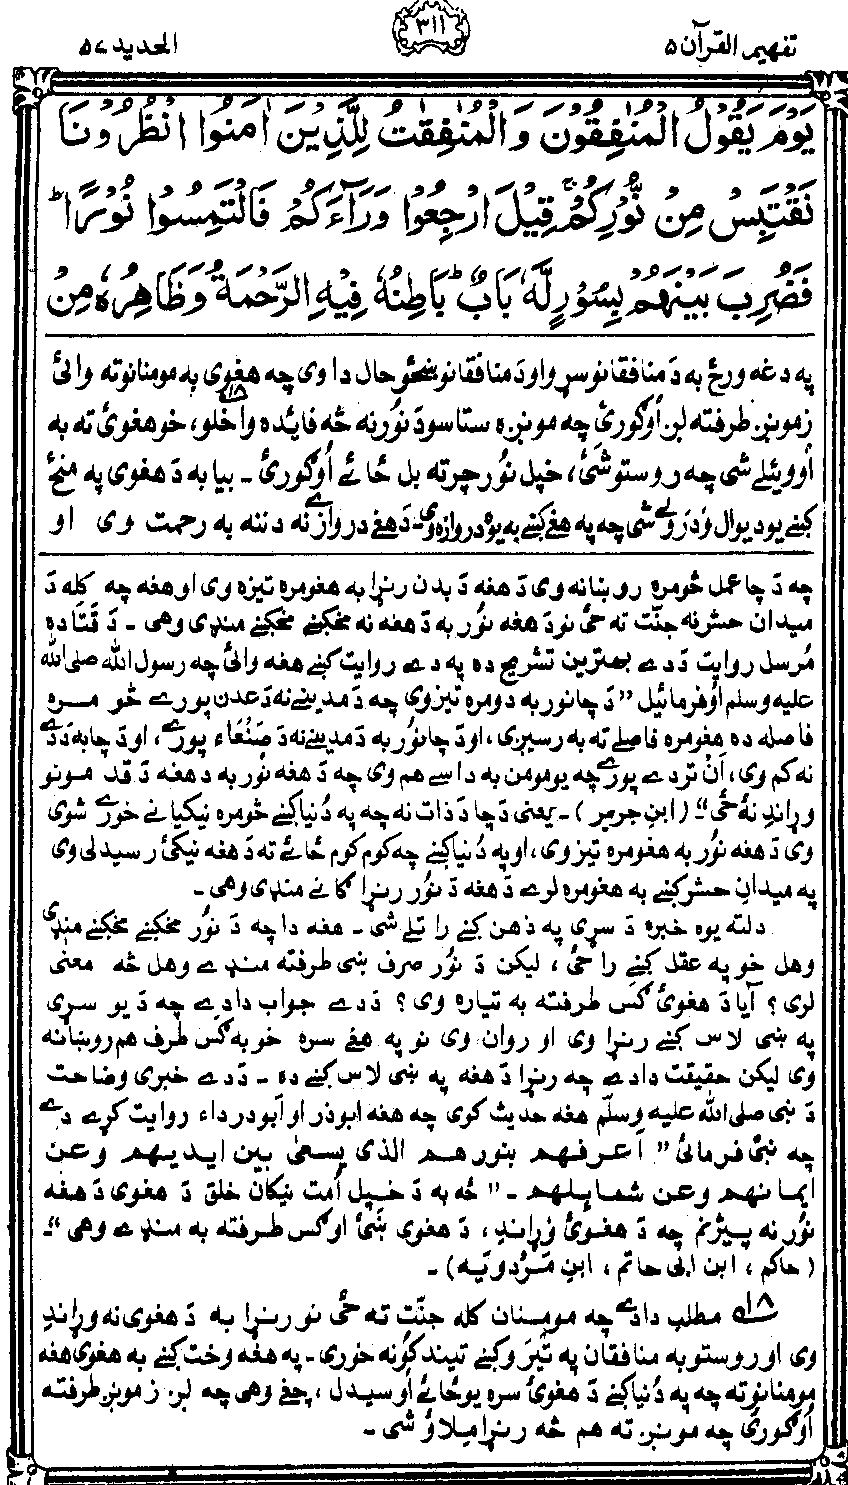 تفهيم القرآن ۵
۳۱۱
الحديد ۵۷
يَوْمَ يَقُوْلُ الْمُنٰفِقُوْنَ وَالْمُنٰفِقٰتُ لِلَّذِيْنَ اٰمَنُوا انْظُرُوْنَا
نَقْتَبِسْ مِنْ نُّوْرِكُمْ ۚ قِيْلَ ارْجِعُوْا وَرَآءَكُمْ فَالْتَمِسُوْا نُوْرًا ؕ
فَضُرِبَ بَيْنَهُمْ بِسُوْرٍ لَّهٗ بَابٌ ؕ بَاطِنُهٗ فِيْهِ الرَّحْمَةُ وَظَاهِرُهٗ مِنْ
په دغه ورځ به دَ منافقانو سړو او دَ منافقانو ښځو حال دا وى چه هغوى به مومنانوته وائى
زمونږ طرفته لږ اُوګورئ چه مونږه ستاسو دَ نُور نه څه فائده واخلو، خو هغوئ ته به
اُووئيلے شى چه روستو شئ، خپل نُور چرته بل ځائے اُوګورئ ۔ بيا به دَ هغوى په منځ
کښے يو ديوال وُدَرولے شى چه په هغے کښے به يوه دروازه وى۔ دَ هغے دروازے نه دننه به رحمت وى او
چه دَ چا عمل څومره روښانه وى دَ هغه دَ بدن رنړا به هغومره تيزه وى او هغه چه کله دَ
ميدان حشر نه جنّت ته ځى نو دَ هغه نُور به دَ هغه نه مخکښے مخکښے منډى وهى ۔ دَ قَتَاده
مُرسل روايت دَ دے بهترين تشريح ده په دے روايت کښے هغه وائى چه رسول الله صلى الله
عليه وسلم اُوفرمائيل "دَ چا نور به دومره تيز وى چه دَ مدينے نه دَ عدن پورے څومره
فاصله ده هغومره فاصلے ته به رسيږى، او دَ چا نُور به دَ مدينے نه دَ صَنْعَاء پورے، او دَ چا به دَ دے
نه کم وى، اَنْ تر دے پورے چه يو مومن به داسے هم وى چه دَ هغه نُور به د هغه دَ قد مونو
وړاندِ نه ځى"۔ (ابنِ جرير)۔ يعنى دَ چا دَ ذات نه چه په دُنيا کښے څومره نيکيانے خورے شوى
وى دَ هغه نُور به هغومره تيز وى، او په دُنيا کښے چه کوم کوم ځائے ته دَ هغه نيکئ رسيدلى وى
په ميدانِ حشر کښے به هغومره لرے دَ هغه دَ نُور رنړا ګانے منډى وهى ۔
دلته يوه خبره دَ سړى په ذهن کښے را تلے شى ۔ هغه دا چه دَ نُور مخکښے مخکښے منډے
وهل خو په عقل کښے را ځى، ليکن دَ نُور صرف ښى طرفته منډے وهل څه معنى
لرى؟ آيا دَ هغوئ ګس طرفته به تياره وى؟ دَ دے جواب دا دے چه دَ يو سړى
په ښى لاس کښے رنړا وى او روان وى نو په هغے سره خو به ګس طرف هم روښانه
وى ليکن حقيقت دا دے چه رنړا دَ هغه په ښى لاس کښے ده ۔ دَ دے خبرى وضاحت
دَ نبى صلى الله عليه وسلّم هغه حديث کوى چه هغه ابوذر او اَبودرداء روايت کړے دے
چه نبى فرمائى "اعرفهم بنورهم الذى يسعىٰ بين ايديهم وعن
ايمانهم وعن شمايلهم ۔" "څه به دَ خپل اُمت نيکان خلق دَ هغوى دَ هغه
نُور نه پيژنم چه دَ هغوئ وړاندِ، دَ هغوى ښئ او ګس طرفته به منډے وهى"۔
(حاکم، ابن ابى حاتم، ابنِ مَرْدوَيه)۔
۱۸ مطلب دا دے چه مومنان کله جنّت ته ځى نو رنړا به دَ هغوى نه وړاندِ
وى او روستو به منافقان په تَيَرَ و کښے تيندکونه خورى ۔ په هغه وخت کښے به هغوى هغه
مومنانوته چه په دُنيا کښے دَ هغوئ سره يو ځائے اُوسيدل، چغے وهى چه لږ زمونږ طرفته
اُوګورئ چه مونږ ته هم څه رنړا ميلاؤ شى ۔